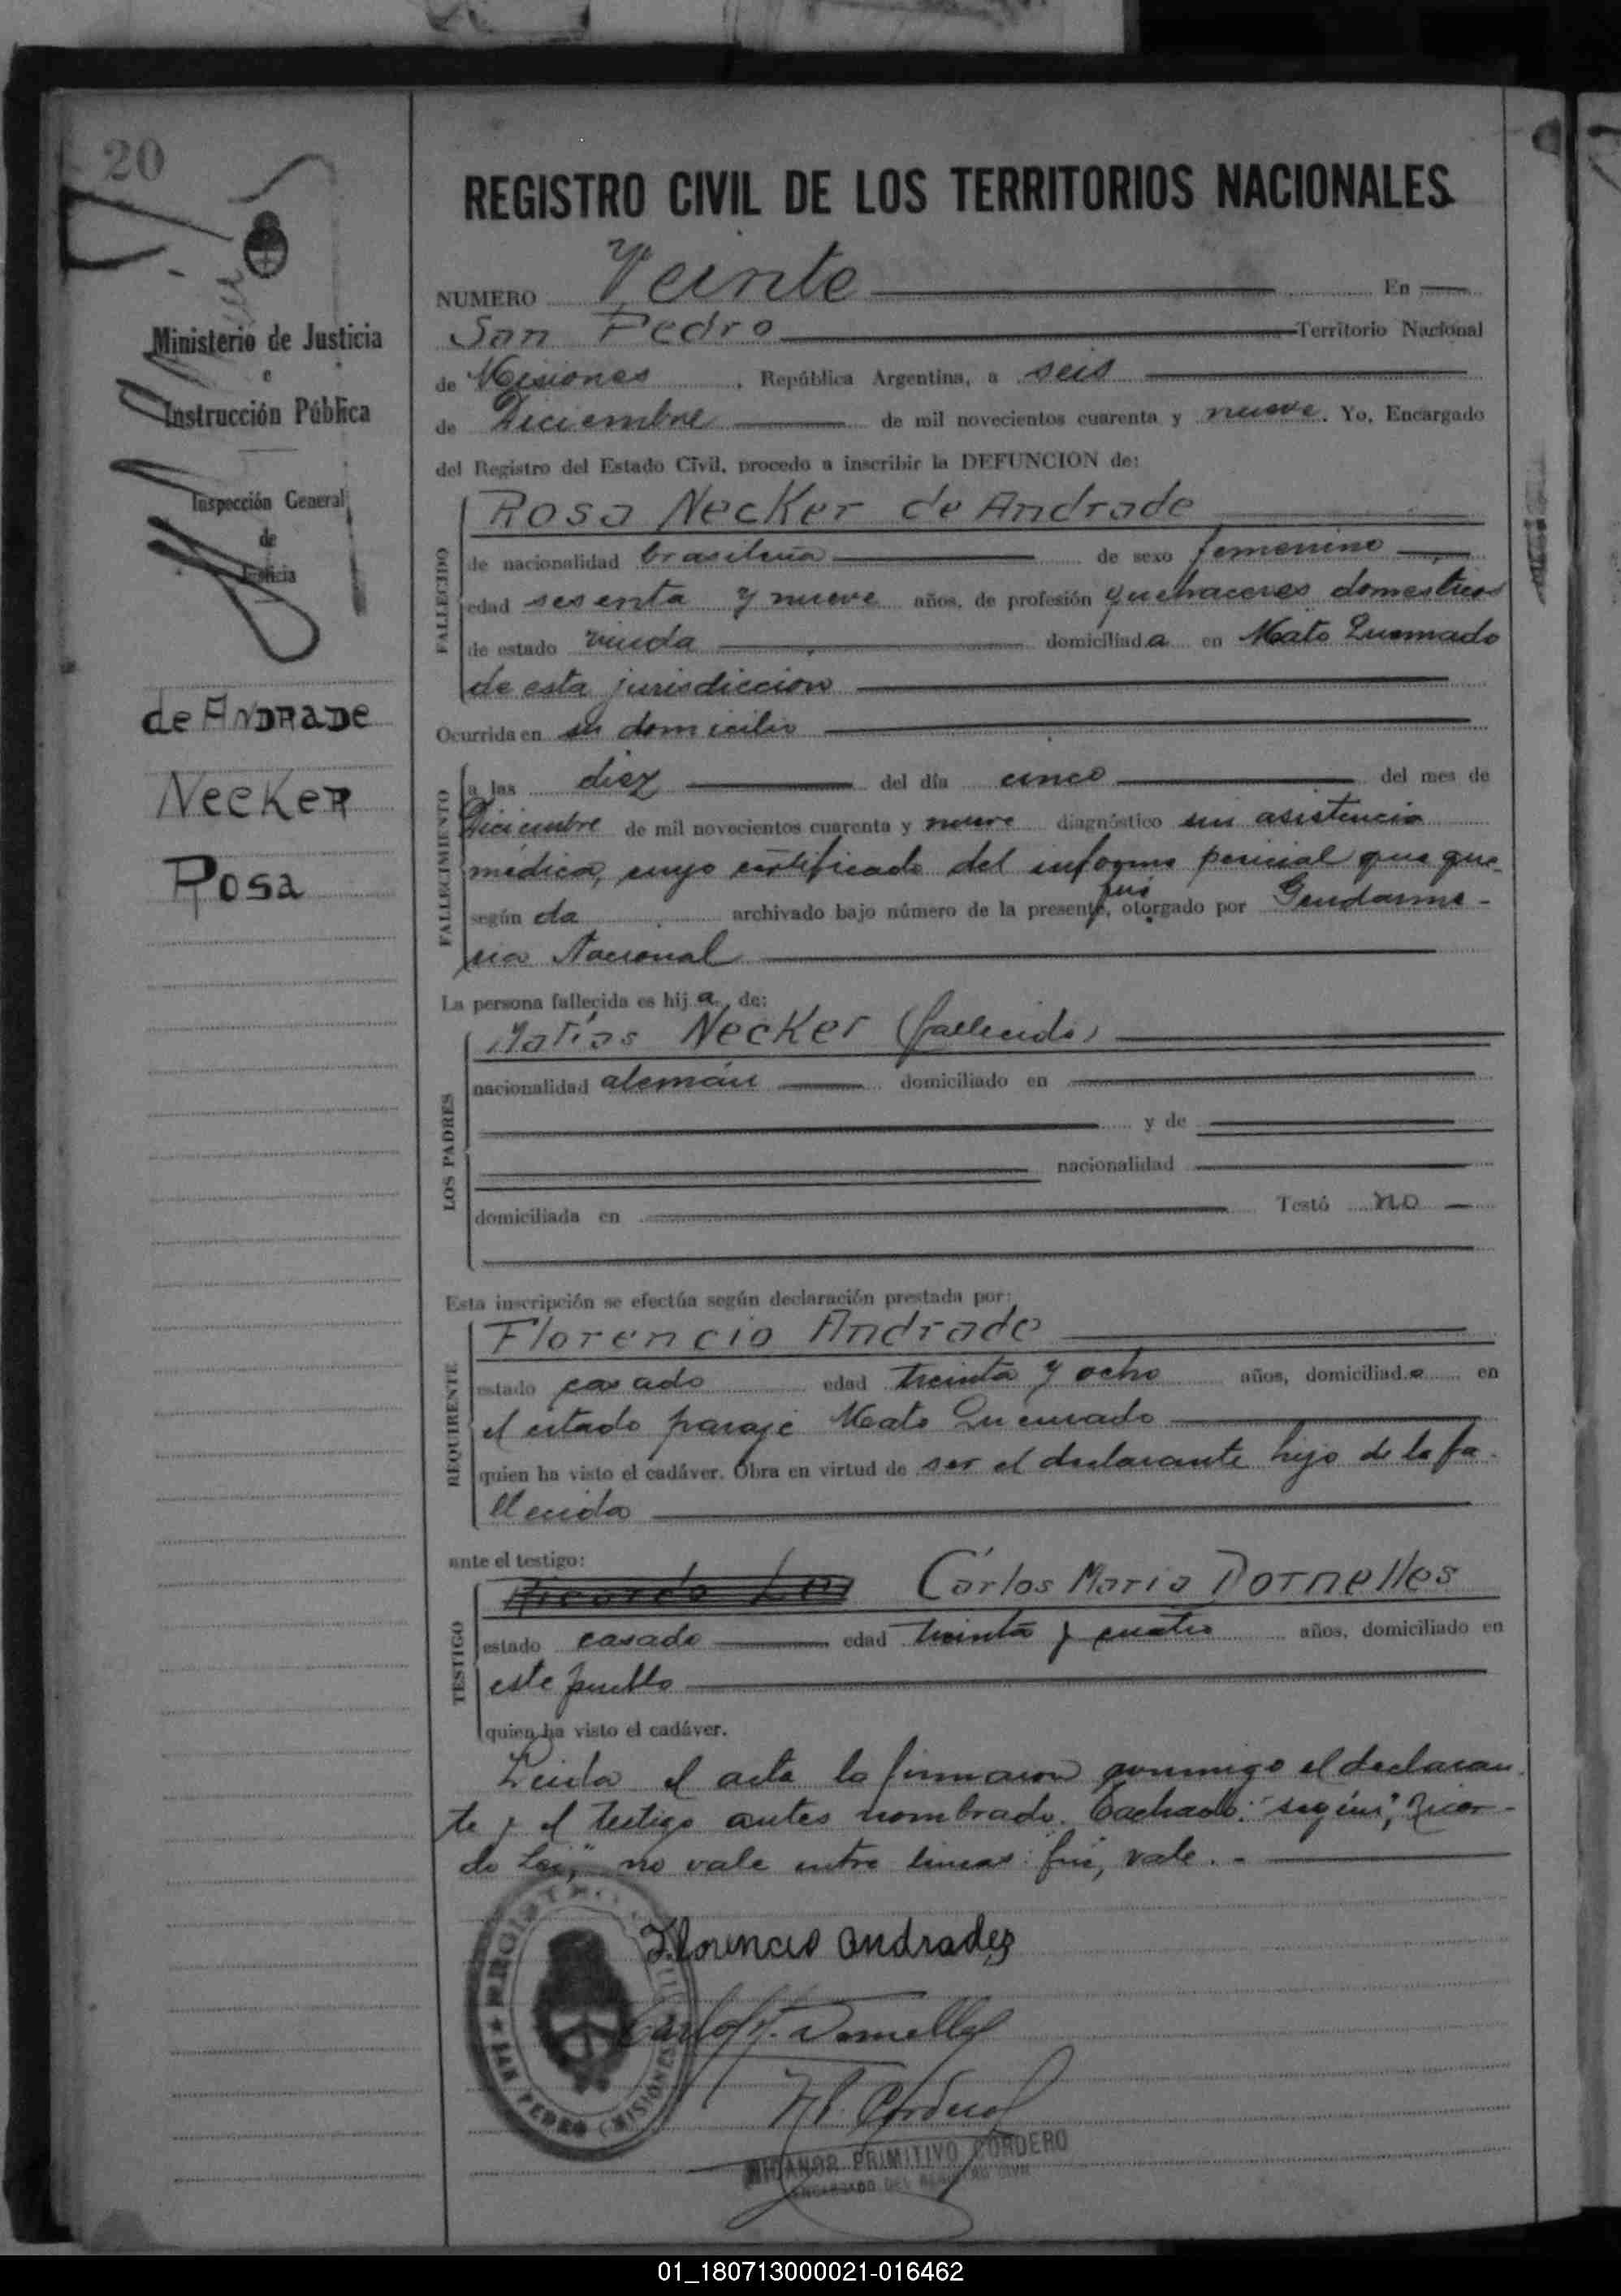 20
REGISTRO CIVIL DE LOS TERRITORIOS NACIONALES
NUMERO Veinte En
San Pedro Territorio Nacional
de Misiones, República Argentina, a seis
de Diciembre de mil novecientos cuarenta y nueve. Yo, Encargado
del Registro del Estado Civil, procedo a inscribir la DEFUNCION de:
Ministerio de Justicia
e
Instrucción Pública
Inspección General
de
Justicia
de ANDRADE
Necker
Rosa
FALLECIDO
Rosa Necker de Andrade
de nacionalidad brasileña de sexo femenino
edad sesenta y nueve años, de profesión quehaceres domesticos
de estado viuda domiciliada en Mato Quemado
de esta jurisdiccion
Ocurrida en su domicilio
FALLECIMIENTO
a las diez del día cinco del mes de
Diciembre de mil novecientos cuarenta y nueve diagnóstico sin asistencia
médica, cuyo certificado del informe pericial que que-
según da archivado bajo número de la presente, fué otorgado por Gendarme-
ria Nacional
La persona fallecida es hija de:
LOS PADRES
Matías Necker (fallecido)
nacionalidad alemán domiciliado en
y de
nacionalidad
domiciliada en Testó no
Esta inscripción se efectúa según declaración prestada por:
REQUIRENTE
Florencio Andrade
estado casado edad treinta y ocho años, domiciliado en
el citado paraje Mato Quemado
quien ha visto el cadáver. Obra en virtud de ser el declarante hijo de la fa-
llecida
ante el testigo:
TESTIGO
Carlos Maria Dornelles
estado casado edad treinta y cuatro años, domiciliado en
este pueblo
quien ha visto el cadáver.
Leida el acta la firmaron conmigo el declaran
te y el testigo antes nombrado. Tachado: "según", Ricar-
do no vale entre lineas: fué, vale.-
Florencio Andrades
Carlos M. Dornelles
N P Cordero
NICANOR PRIMITIVO CORDERO
ENCARGADO DEL REGISTRO CIVIL
REGISTRO CIVIL
SAN PEDRO (MISIONES)
01_180713000021-016462